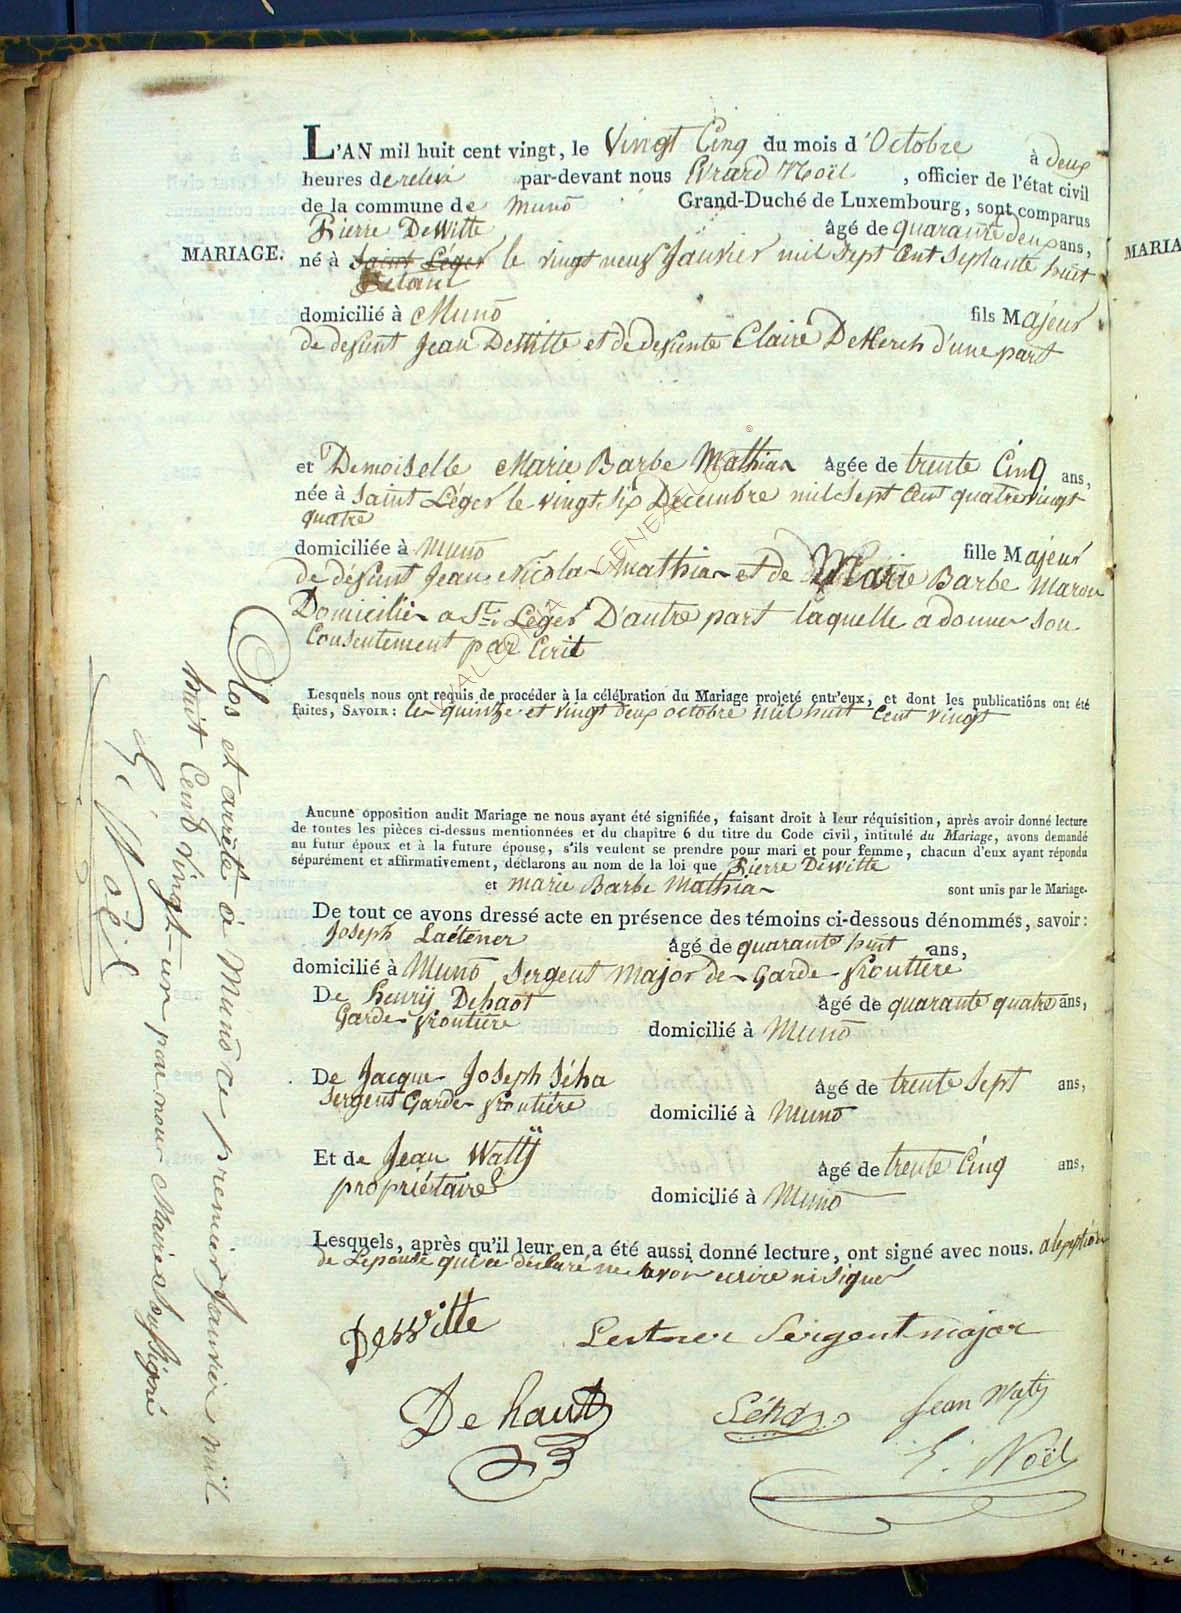 L'AN mil huit cent vingt, le Vingt Cinq du mois d'Octobre à deux
heures de relevé par-devant nous Evrard Noël, officier de l'état civil
de la commune de Muno Grand-Duché de Luxembourg, sont comparus
Pierre DeWitte âgé de quarante deux ans,
MARIAGE. né à Saint Léger le vingt neuf Janvier mil sept Cent Septante huit
domicilié à Muno fils Majeur
de defunt Jean DeWitte et de defunte Claire DeKerch d'une part
et Demoiselle Marie Barbe Mathias âgée de trente Cinq ans,
née à Saint Léger le vingt Six Decembre mil sept Cent quatre vingt
quatre
domiciliée à Muno fille Majeur
de défunt Jean Nicolas Mathias et de Marie Barbe Maron
Domicilié a St. Léger D'autre part laquelle a donner son
Consentement par Ecrit
Lesquels nous ont requis de procéder à la célébration du Mariage projeté entr'eux, et dont les publications ont été
faites, SAVOIR: les quinze et vingt deux octobre mil huit Cent vingt
Aucune opposition audit Mariage ne nous ayant été signifiée, faisant droit à leur réquisition, après avoir donné lecture
de toutes les pièces ci-dessus mentionnées et du chapitre 6 du titre du Code civil, intitulé du Mariage, avons demandé
au futur époux et à la future épouse, s'ils veulent se prendre pour mari et pour femme, chacun d'eux ayant répondu
séparément et affirmativement, déclarons au nom de la loi que Pierre DeWitte
et marie Barbe Mathias sont unis par le Mariage.
De tout ce avons dressé acte en présence des témoins ci-dessous dénommés, savoir:
Joseph Laétener âgé de quarante huit ans,
domicilié à Muno Sergent Major de Garde frontière
De Henrij Dehaot âgé de quarante quatre ans,
Garde frontière domicilié à Muno
De Jacque Joseph Séha âgé de trente Sept ans,
Sergent Garde frontière domicilié à Muno
Et de Jean Watÿ âgé de trente Cinq ans,
propriétaire domicilié à Muno
Lesquels, après qu'il leur en a été aussi donné lecture, ont signé avec nous. alepption
de Lepouse qui a déclaré ne savoir ecrire ni signer
DeWitte Lestner Sergent major
Dehaut Séha Jean Waty
E. Noël
Clos et arrêté à Muno ce premier Janvier mil
huit Cent vingt-un par nous Maire Soussigné
E. Noël
MARIA
WALLONIA GENEALOGY